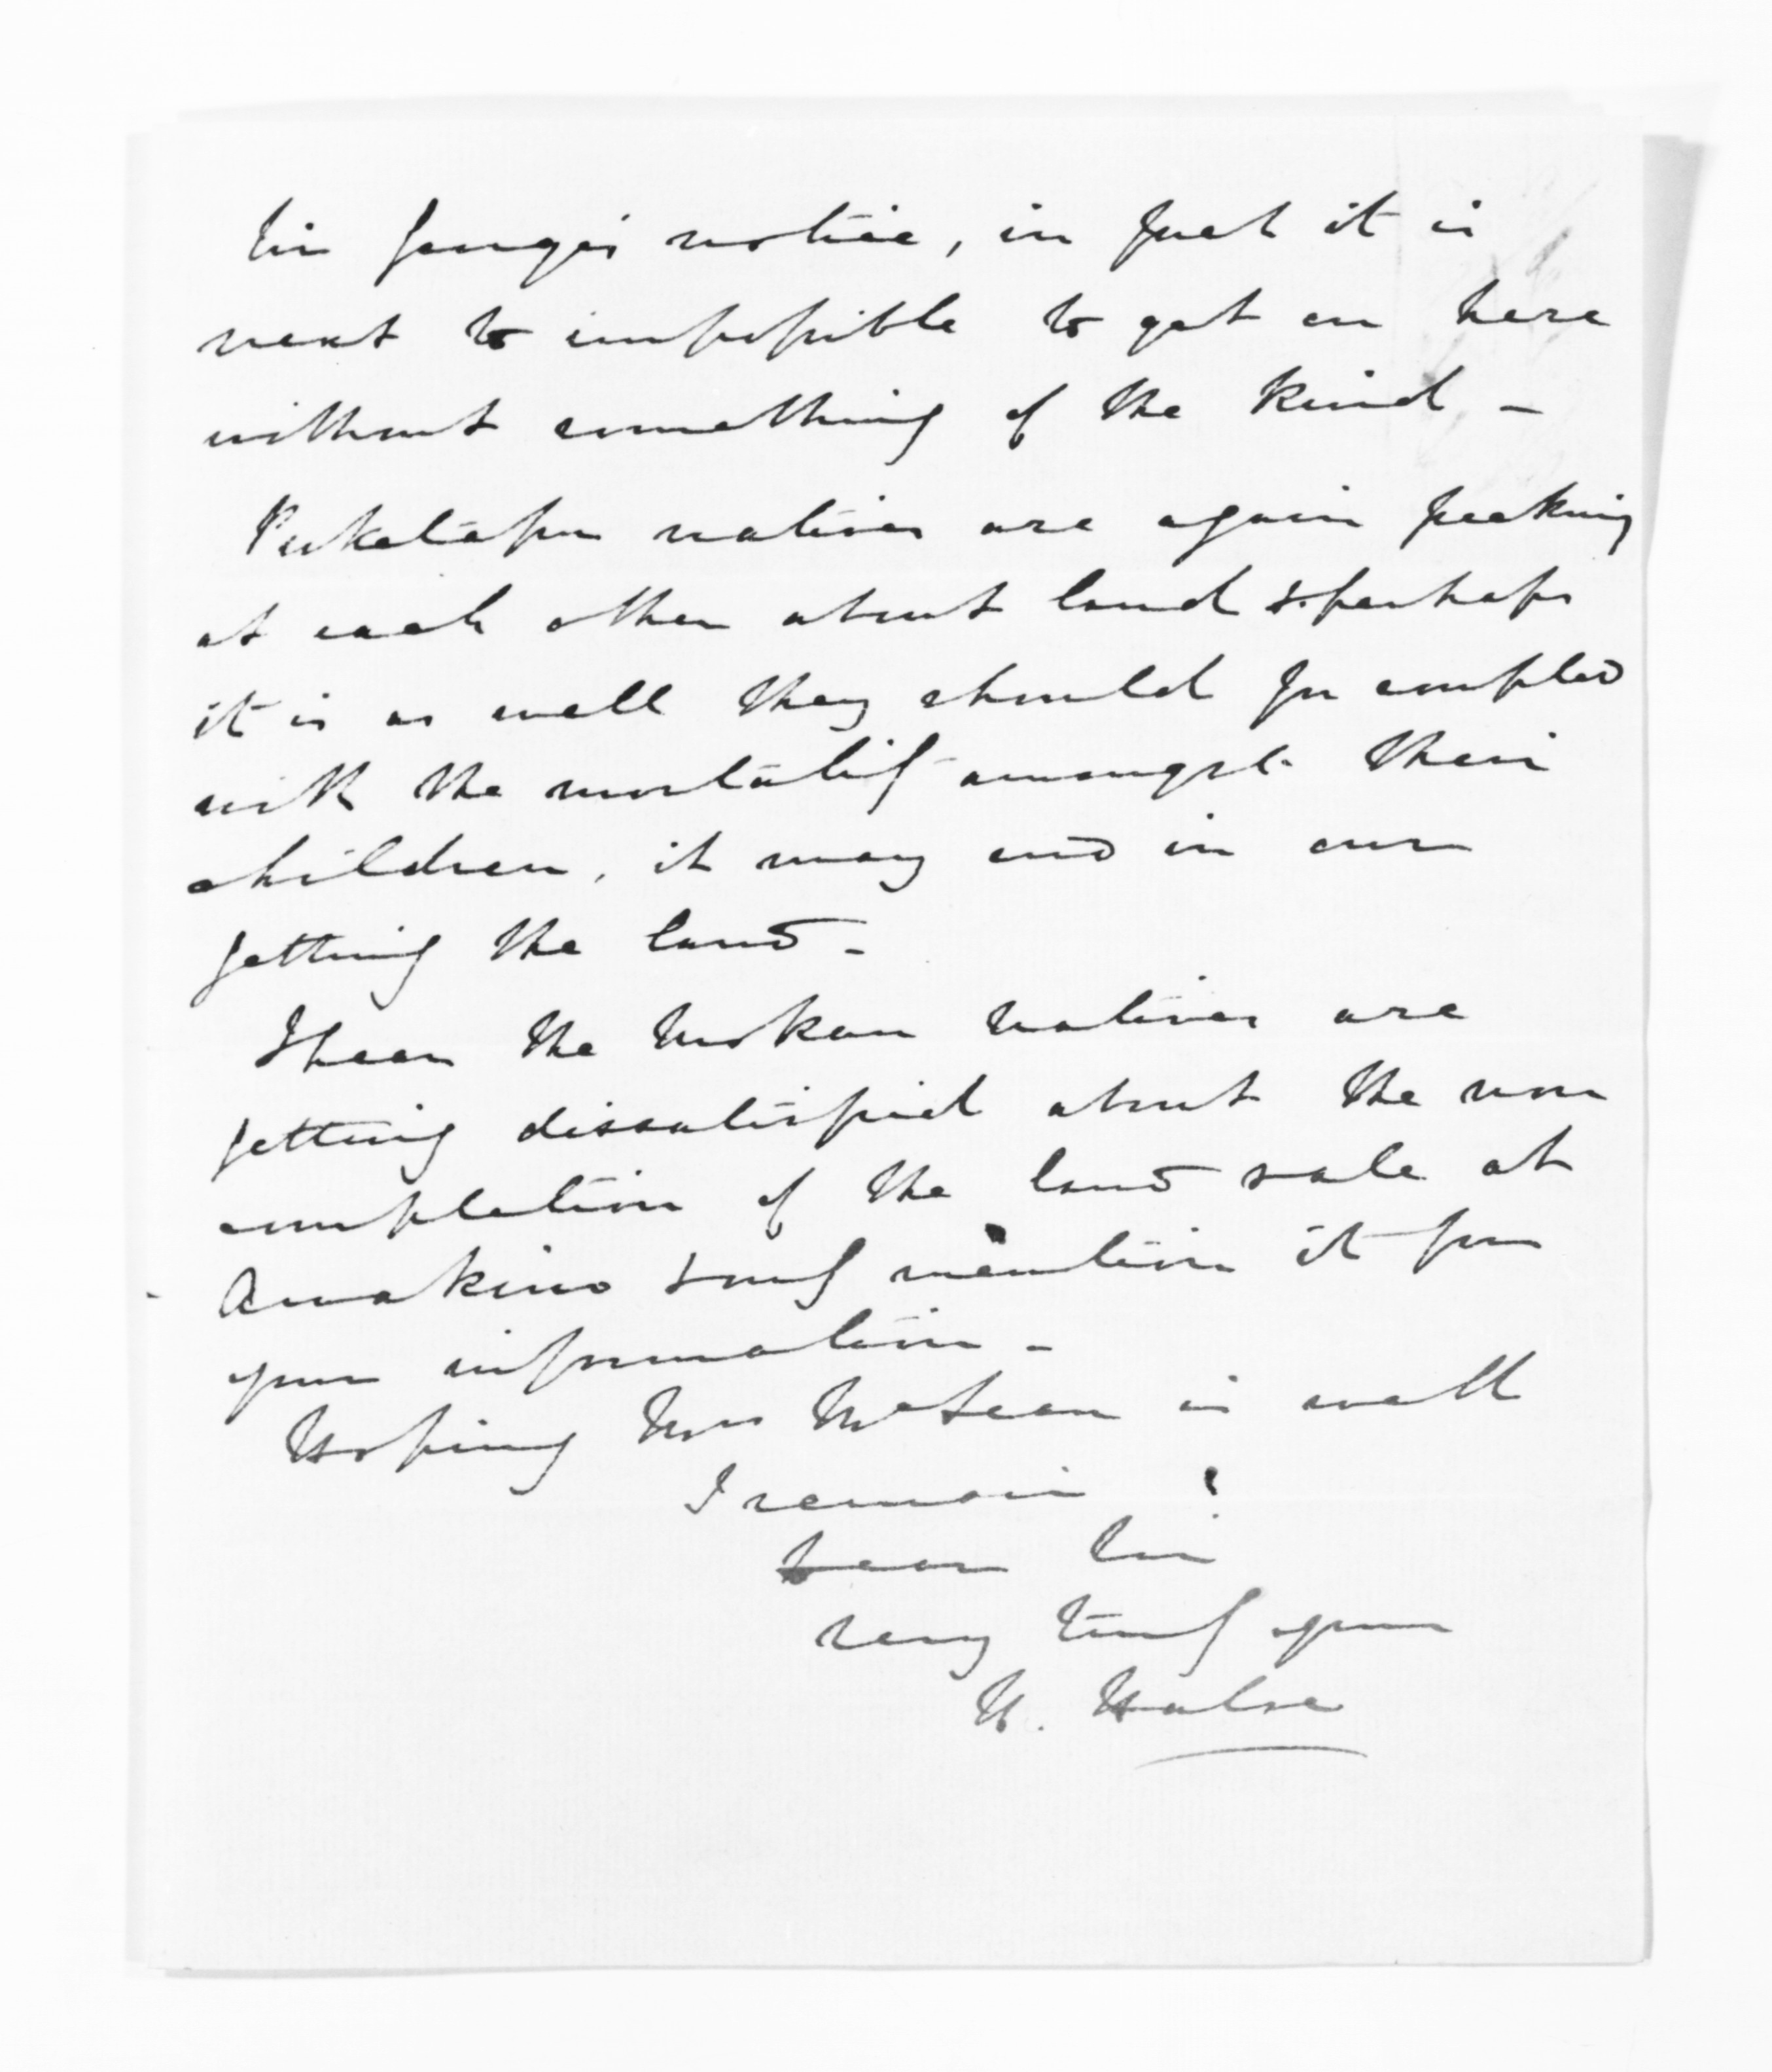 Sir George's notice, in fact it is
next to impossible to get on here
without something of the kind -
Puketapu natives are again pecking
at each other about land & perhaps
it is as well they should for coupled
with the mortality amongst their
children, it may end in our
getting the land -
I hear the Mokau natives are
getting dissatisfied about the non
completion of the land sale at
Awakino & only mention it for
your information -
Hoping Mrs McLean is well
I remain
Dear Sir
very truly yours
H. Halse